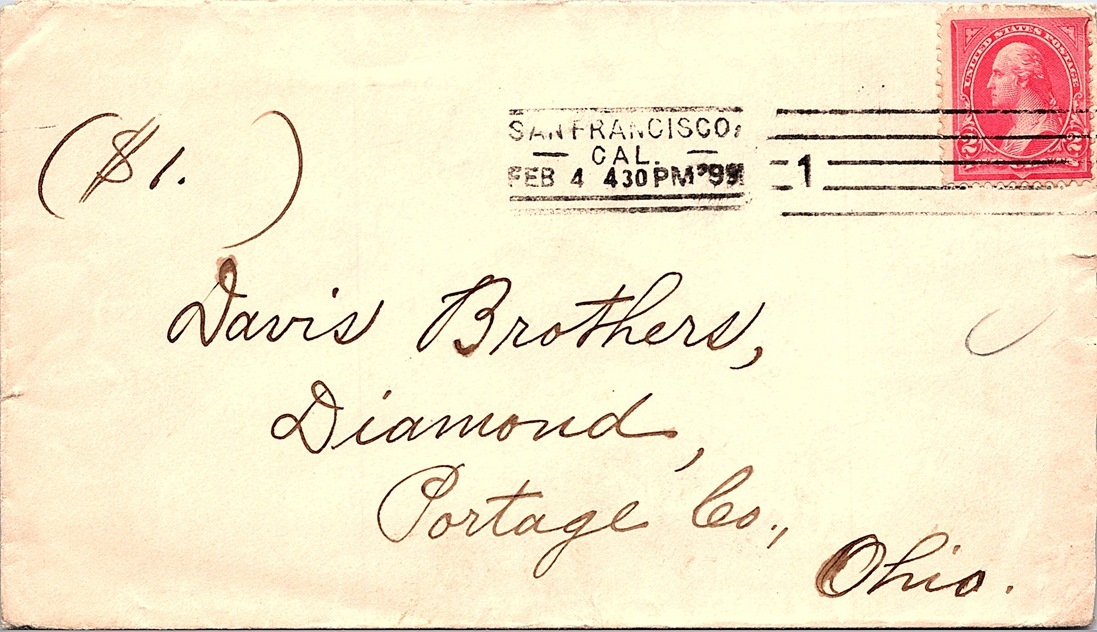 UNITED STATES POSTAGE
2 2
SAN FRANCISCO,
CAL.
FEB 4 430 PM '99
1
($1. )
Davis Brothers,
Diamond,
Portage Co.,
Ohio.